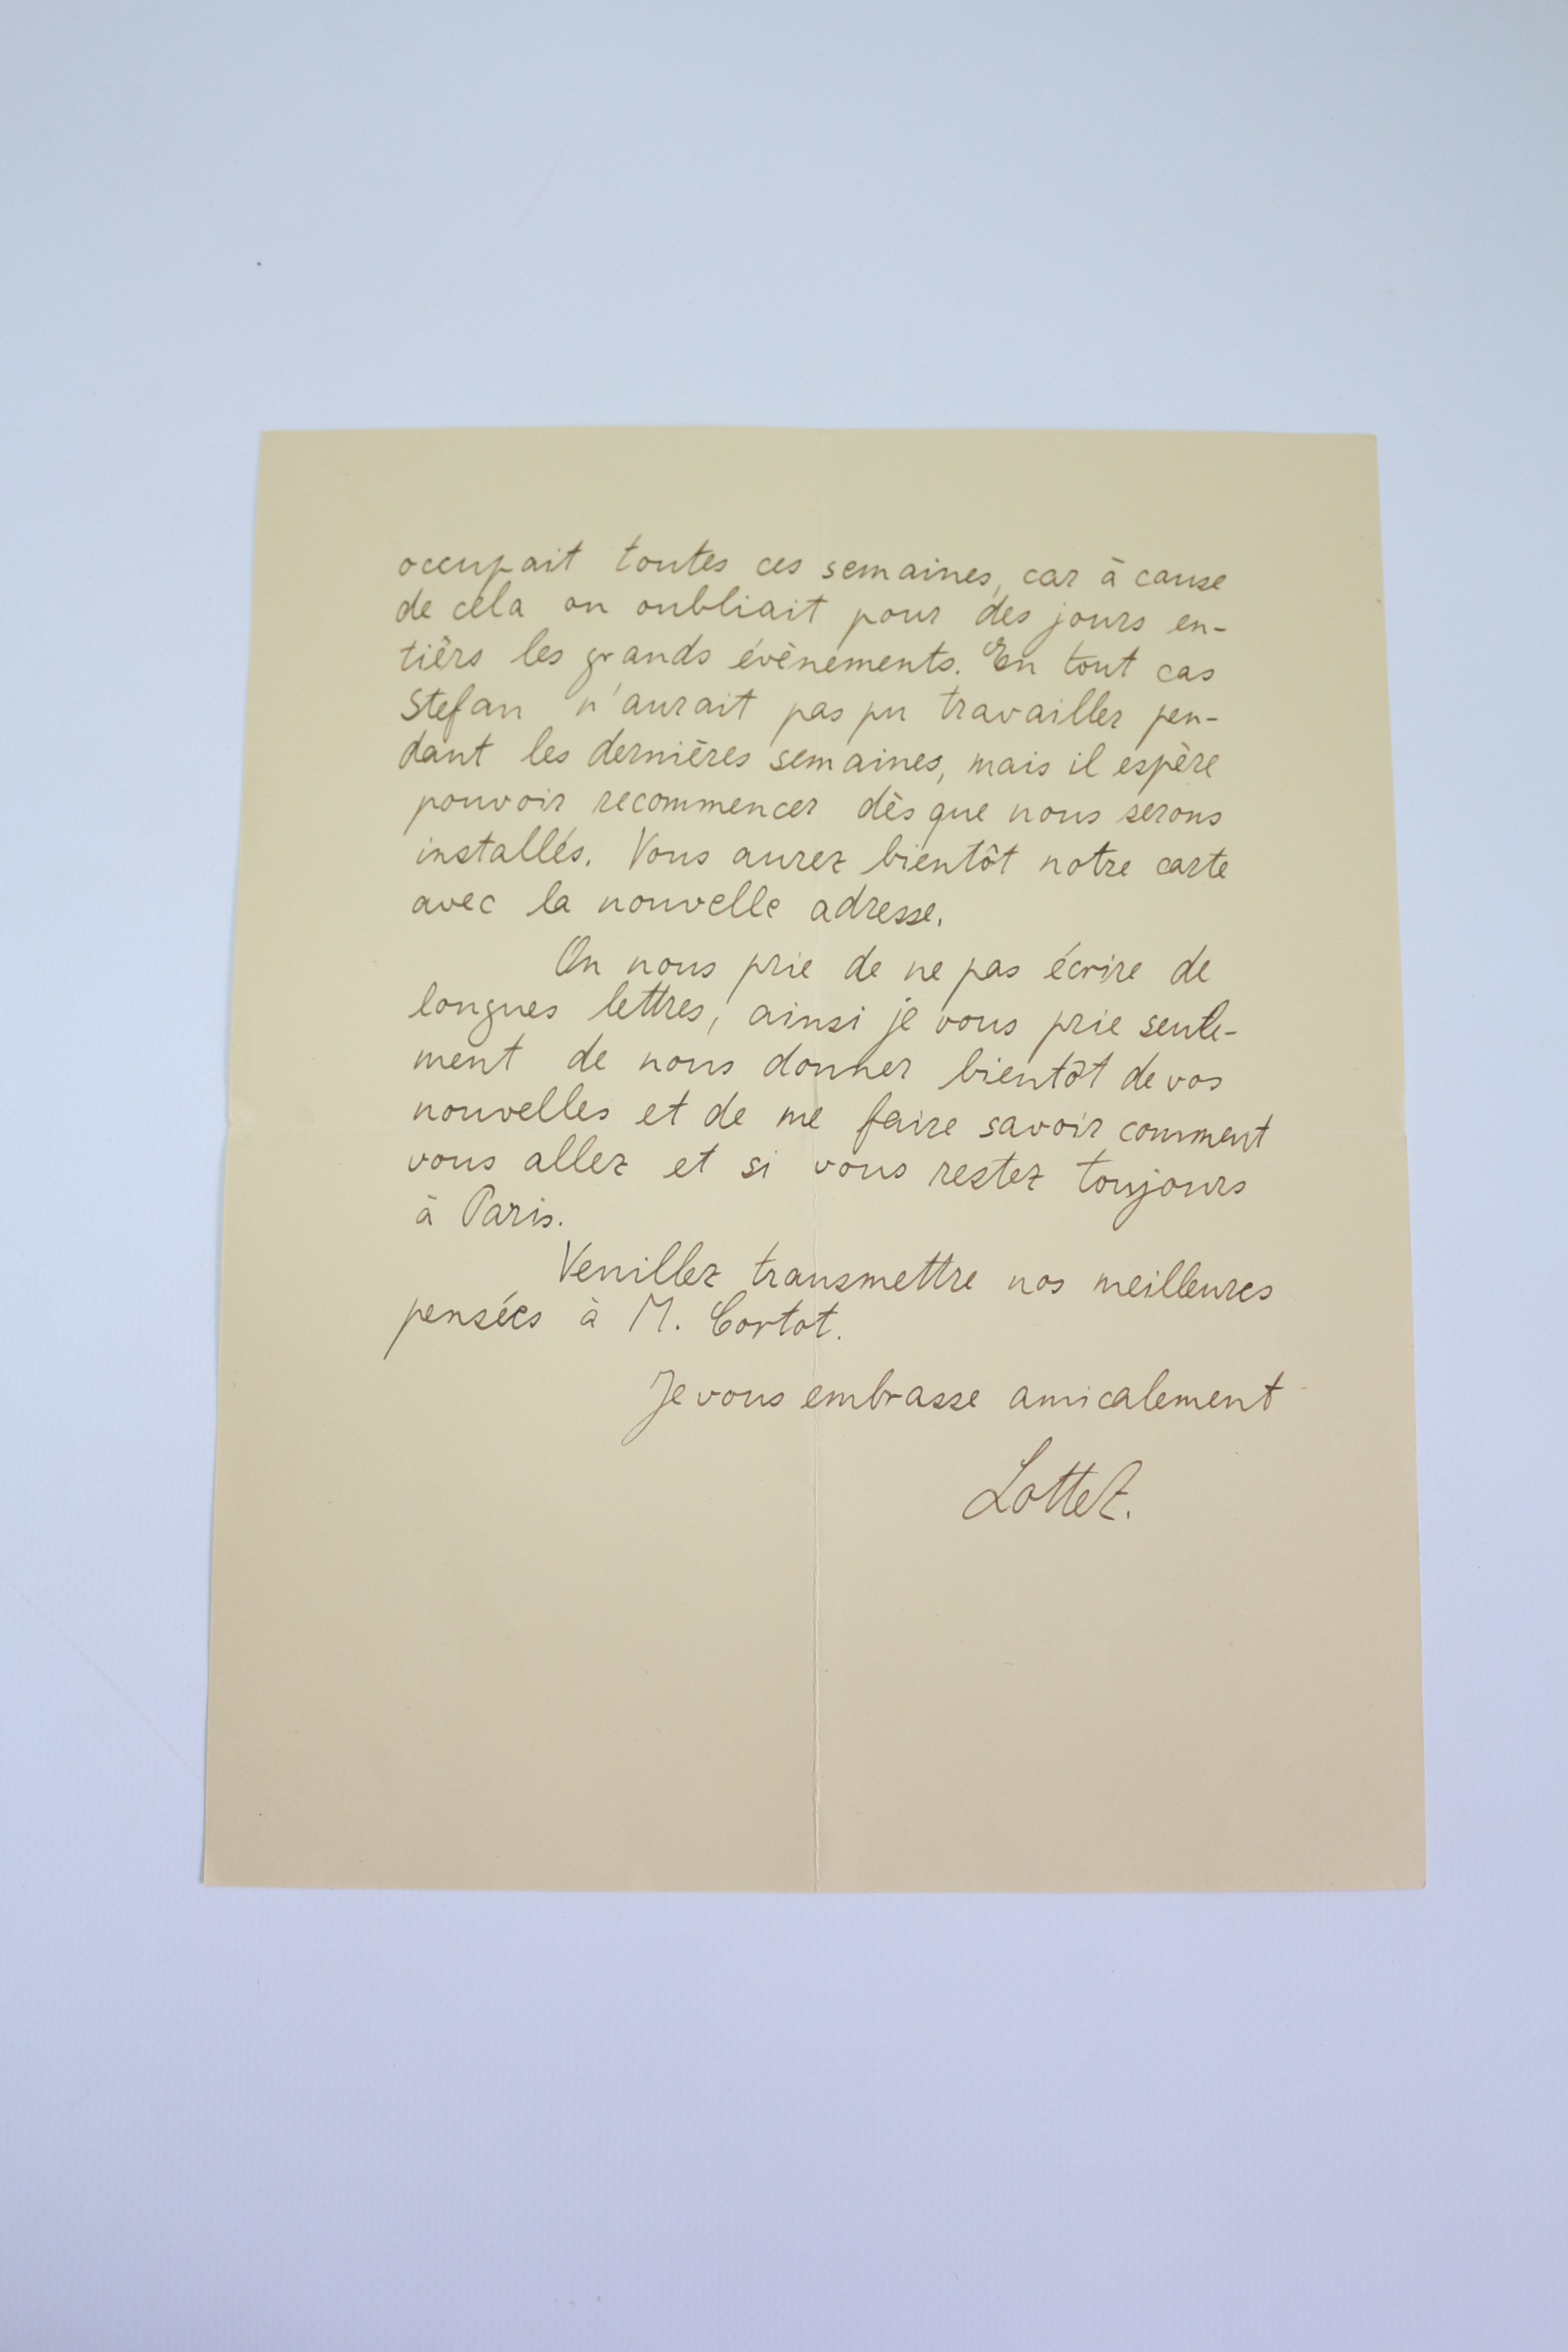 occupait toutes ces semaines, car à cause
de cela on oubliait pour des jours en-
tièrs les grands évènements. En tout cas
Stefan n'aurait pas pu travailler pen-
dant les dernières semaines, mais il espère
pouvoir recommencer dès que nous serons
installés. Vous aurez bientôt notre carte
avec la nouvelle adresse.
On nous prie de ne pas écrire de
longues lettres, ainsi je vous prie seule-
ment de nous donner bientôt de vos
nouvelles et de me faire savoir comment
vous allez et si vous restez toujours
à Paris.
Veuillez transmettre nos meilleures
pensées à M. Cortot.
Je vous embrasse amicalement
Lotte Z.